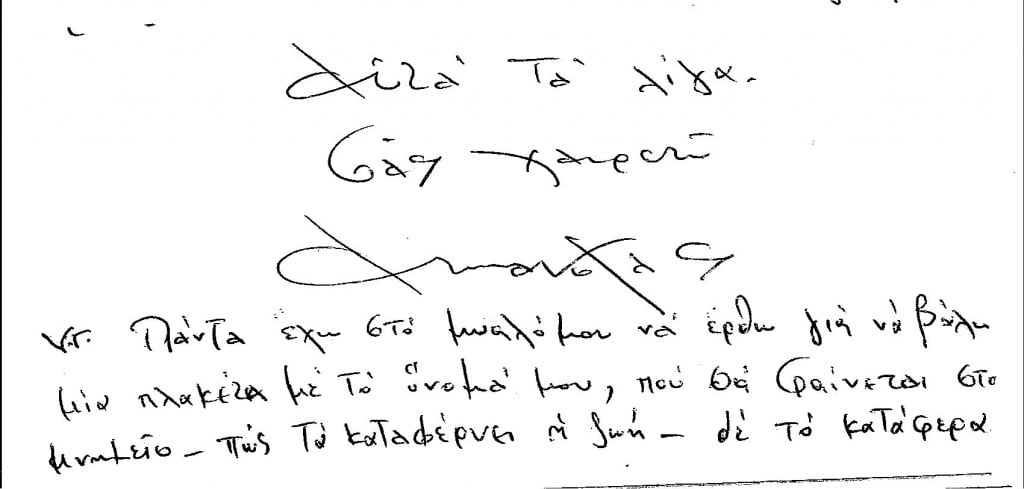 Αὐτὰ τὰ λίγα.
Σᾶς χαιρετῶ
Υ.Γ. Πάντα ἔχω στὸ μυαλό μου νὰ ἔρθω γιὰ νὰ βάλω
μία πλακέτα μὲ τὸ ὄνομά μου, ποὺ θὰ φαίνεται στὸ
μνημεῖο – πῶς τὰ καταφέρνει ἡ ζωή – δὲ τὸ κατάφερα